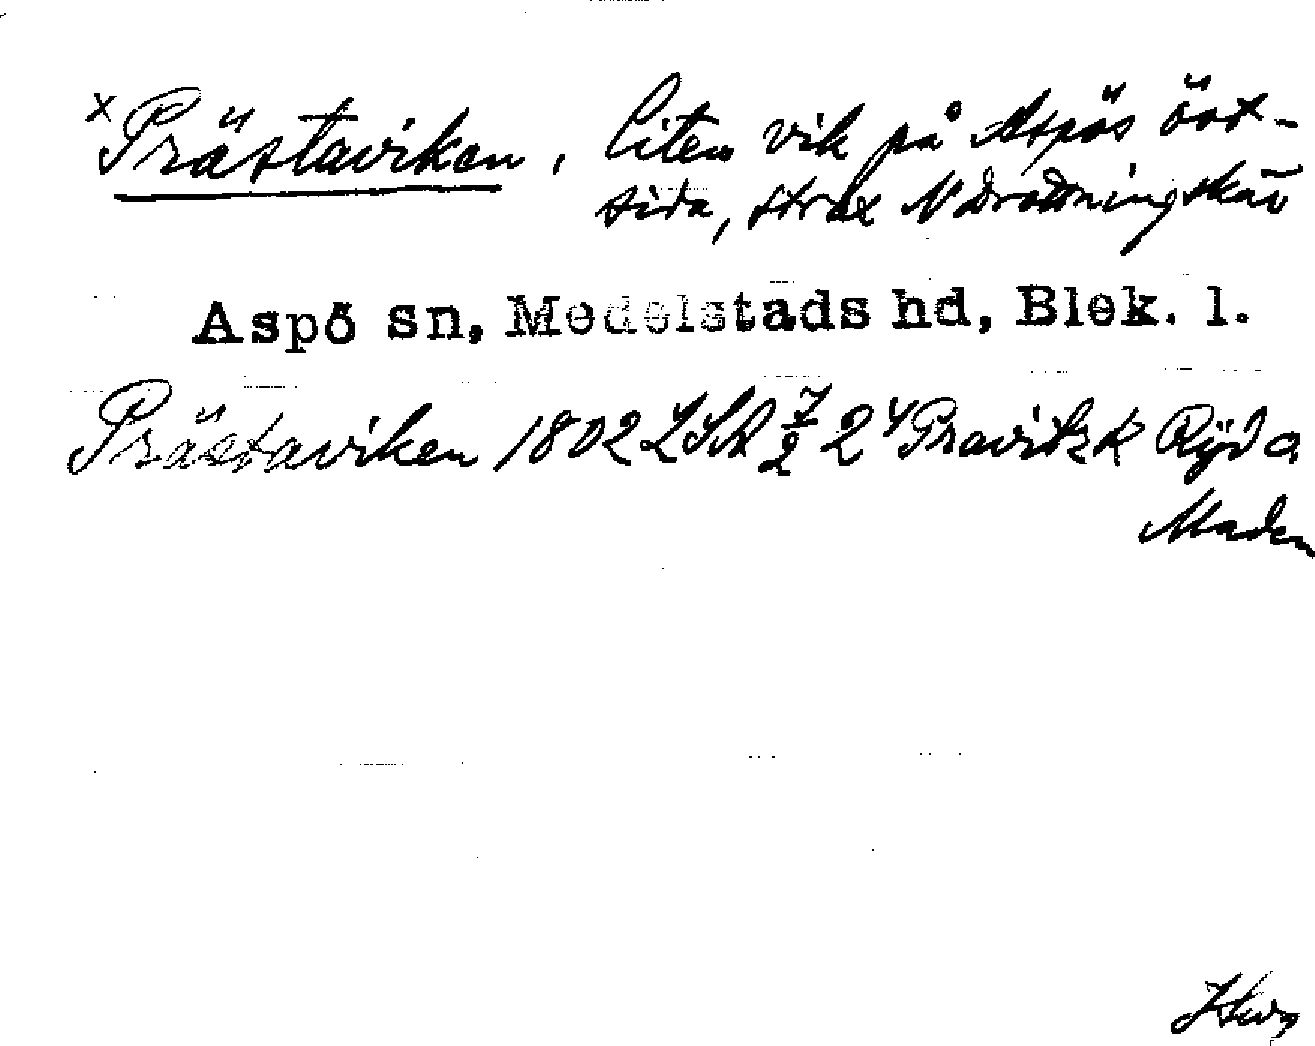 x Prästaviken, liten vik på Aspös öst-
sida, strax N Drottningskär
Aspö sn, Medelstads hd, Blek. l.
Prästaviken 1802 LSA 7/2 24 Ryd a
Maden